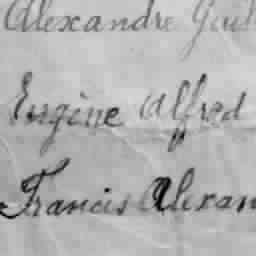 Alexandre
Eugène Alfred
Francis Alexan